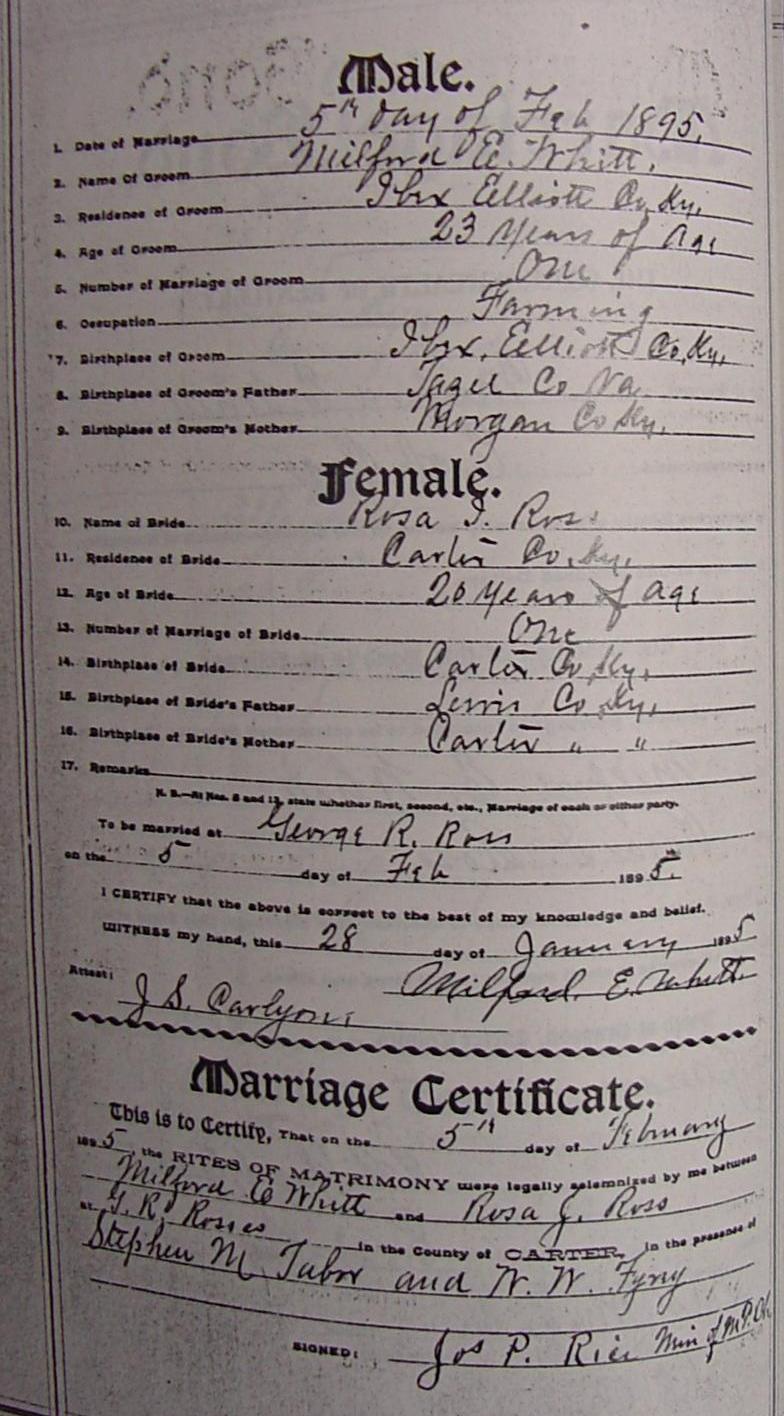 Male.
1. Date of Marriage 5th day of Feb 1895.
2. Name Of Groom Milford E. Whitt.
3. Residence of Groom Ibex Elliott Co, Ky,
4. Age of Groom 23 Years of Age
5. Number of Marriage of Groom One
6. Occupation Farming
7. Birthplace of Groom Ibex, Elliott Co, Ky,
8. Birthplace of Groom's Father Tazel Co Va
9. Birthplace of Groom's Mother Morgan Co Ky,
Female.
10. Name of Bride Rosa J. Ross
11. Residence of Bride Carter Co, Ky,
12. Age of Bride 20 Years of age
13. Number of Marriage of Bride One
14. Birthplace of Bride Carter Co, Ky,
15. Birthplace of Bride's Father Lewis Co, Ky,
16. Birthplace of Bride's Mother Carter " "
17. Remarks
N. B.—At Nos. 5 and 13, state whether first, second, etc., Marriage of each or either party.
To be married at George R. Ross
on the 5 day of Feb 1895.
I CERTIFY that the above is correct to the best of my knowledge and belief.
WITNESS my hand, this 28 day of January 1895
Milford. E. Whitt.
Attest: J. S. Carlyon,
Marriage Certificate.
This is to Certify, That on the 5th day of February
1895, the RITES OF MATRIMONY were legally solemnized by me between
Milford E Whitt and Rosa J. Ross
at G. R. Rosses in the County of CARTER, in the presence of
Stephen M Tabor and W. W.
SIGNED: Jos P. Rice Min of M. P. Ch